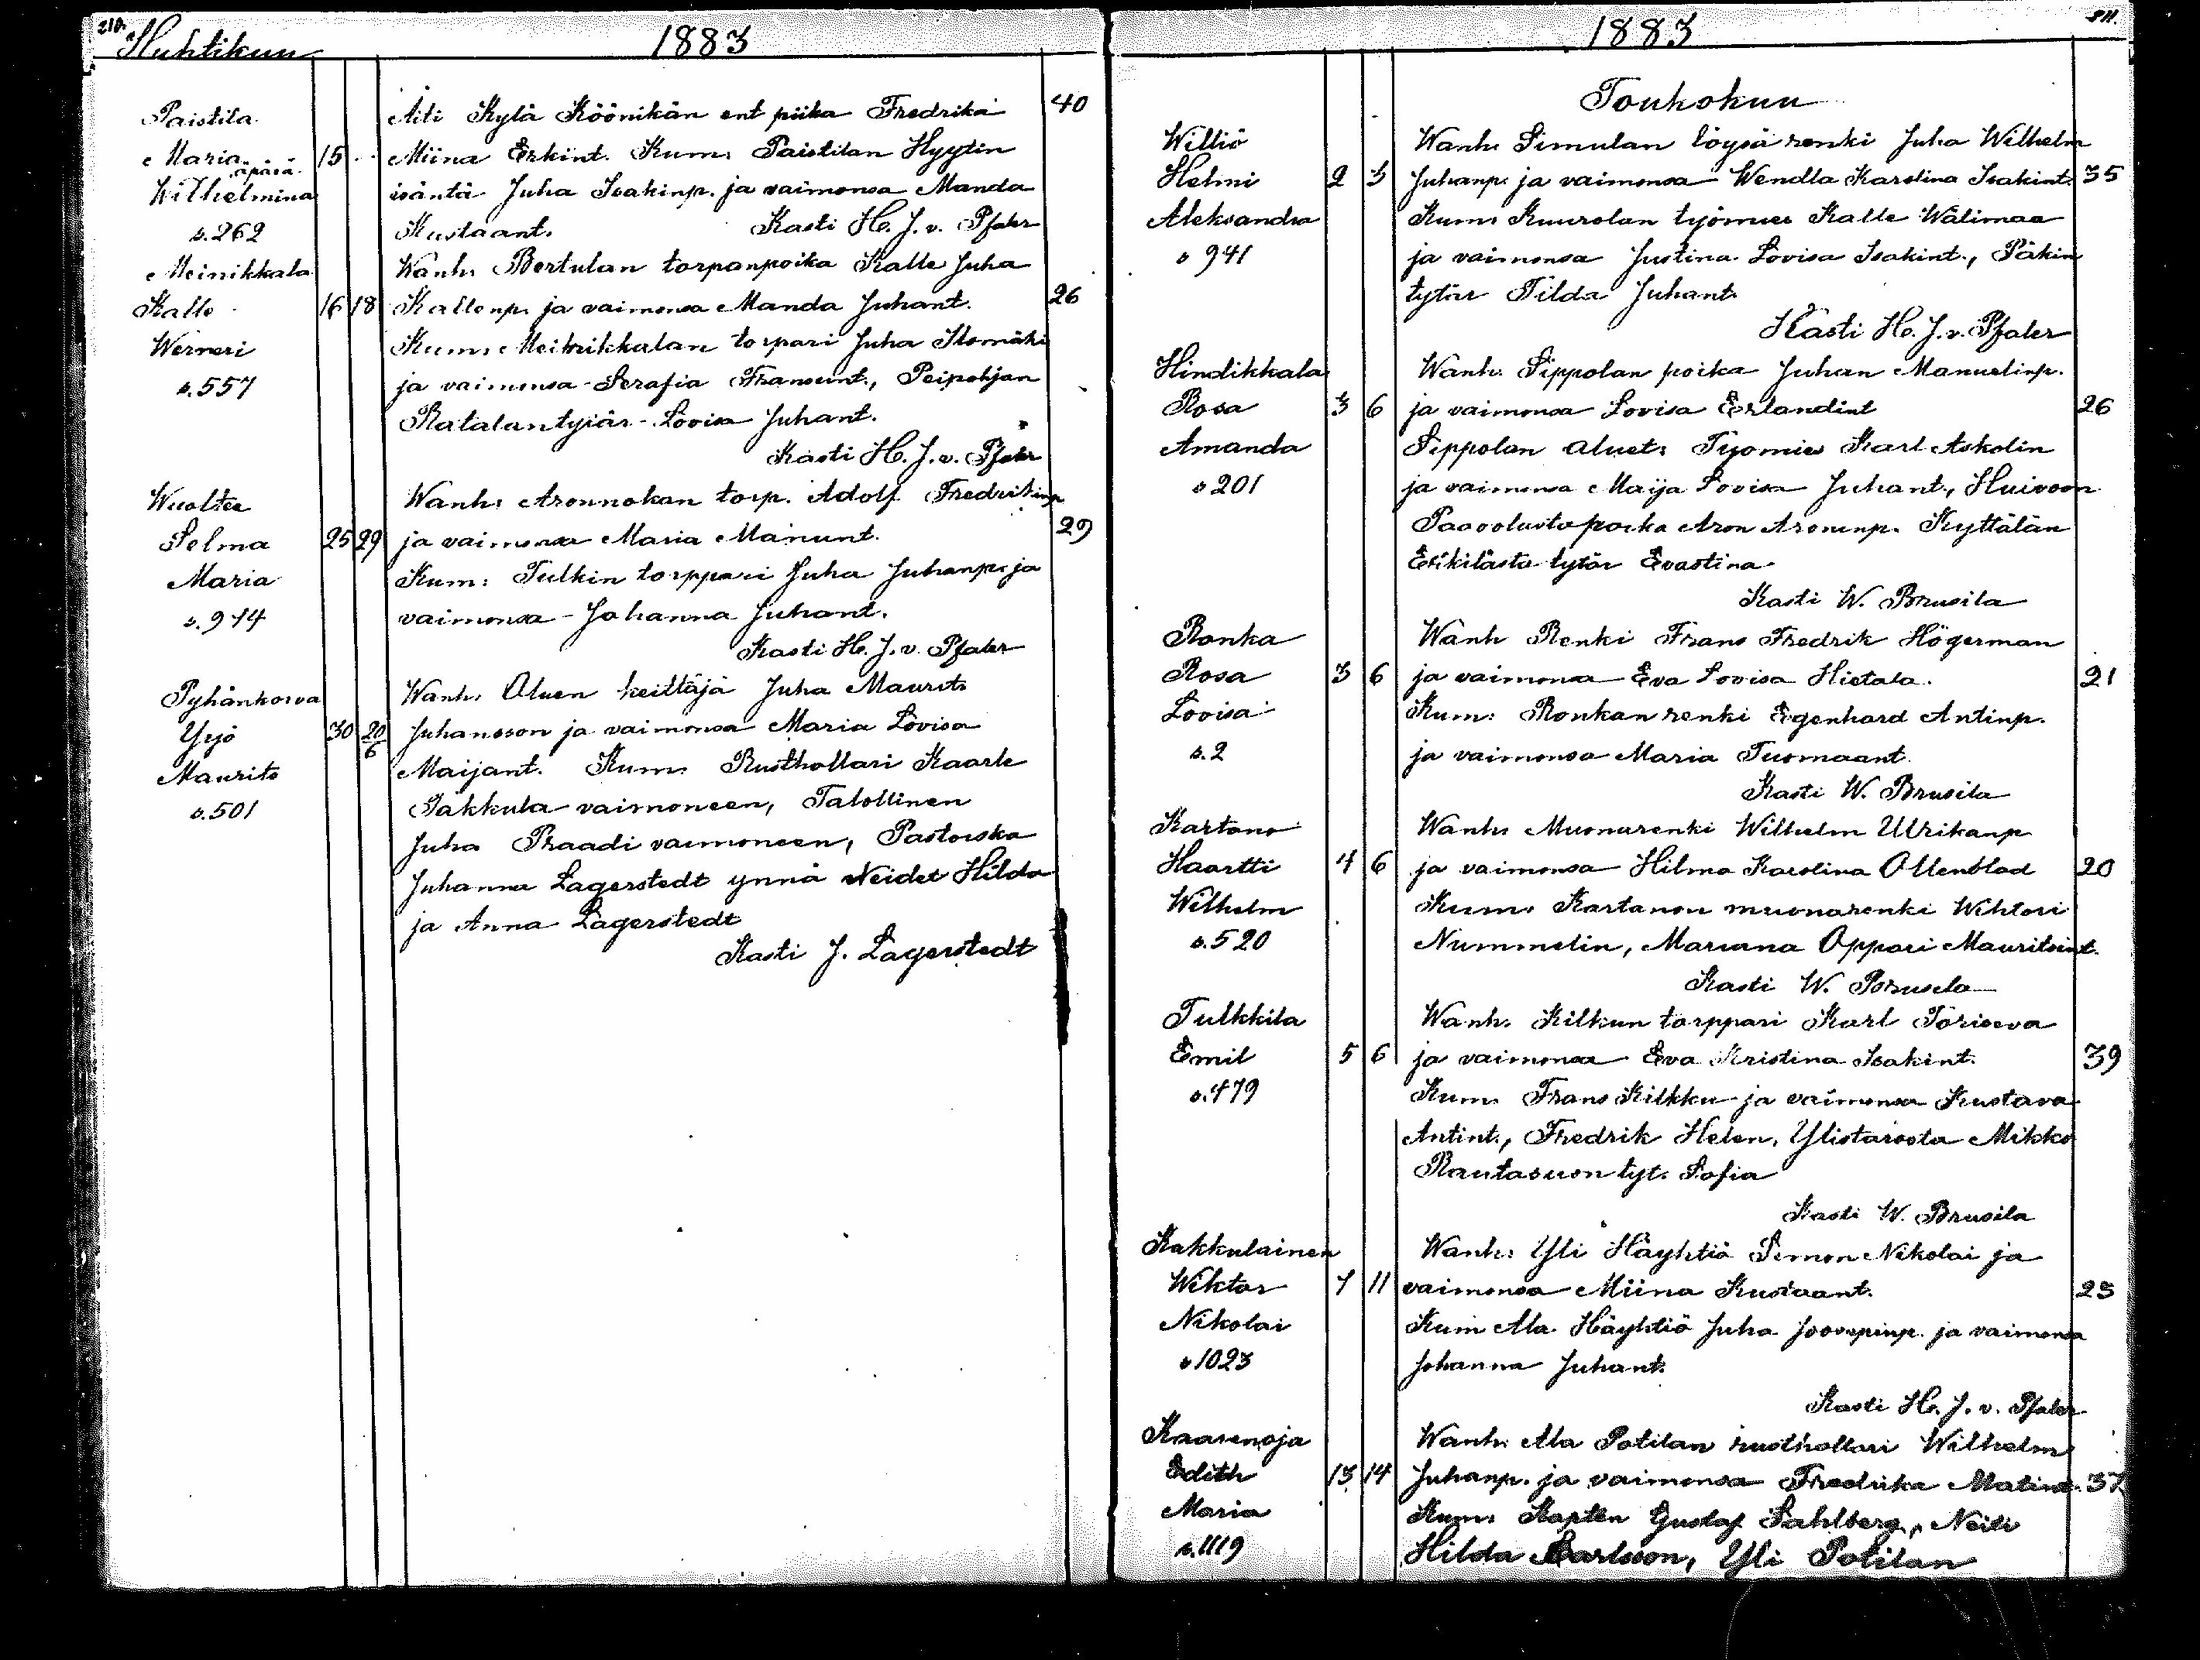 210.
Huhtikuu
1883
Paistila
Äiti Kylä Köönikän ent piika Fredrika
40
Maria
15
Miina Erkint. Kum: Paistilan Hyytin
äpärä
Wilhelmina
isäntä Juha Isakinp. ja vaimonsa Manda
s. 262
Kustaant.
Kasti H. J. v. Pfaler
Meinikkala
Wanh: Bertulan torpanpoika Kalle Juha
Kalle
16 18
Kallenp. ja vaimonsa Manda Juhant.
26
Werneri
Kum: Meinikkalan torpari Juha Ilomäki
s. 557
ja vaimonsa Serafia Fransint., Peipohjan
Ratalan tytär Lovisa Juhant.
Kasti H. J. v. Pfaler
Wuoltee
Wanh: Aronnokan torp. Adolf Fredrikinp
Selma
25 29
ja vaimonsa Maria Manunt.
29
Maria
Kum: Tulkin torppari Juha Juhanp. ja
s. 914
vaimonsa Johanna Juhant.
Kasti H. J. v. Pfaler
Pyhänkorva
Wanh: Oluen keittäjä Juha Maurits
Yrjö
30 20/6
Juhansson ja vaimonsa Maria Lovisa
Maurits
Maijant. Kum: Rusthollari Kaarle
s. 501
Jakkula vaimoneen, Talollinen
Juha Praadi vaimoneen, Pastorska
Juhanna Lagerstedt ynnä Neidet Hilda
ja Anna Lagerstedt
Kasti J. Lagerstedt
211.
1883
Toukokuu
Williö
Wanh: Simulan löysä renki Juha Wilhelm
Helmi
2 3
Juhanp. ja vaimonsa Wendla Karolina Isakint.
35
Aleksandra
Kum: Kuurolan työmies Kalle Wälimaa
s 941
ja vaimonsa Justina Lovisa Isakint., Päkin
tytär Tilda Juhant.
Kasti H. J. v. Pfaler
Hindikkala
Wanh: Sippolan poika Juhan Manuelinp.
Rosa
3 6
ja vaimonsa Lovisa Erlandint
26
Amanda
Sippolan aluet: Työmies Karl Askolin
s 201
ja vaimonsa Maija Lovisa Juhant., Huivoon
Paavolasta poika Aron Aroninp. Kyttälän
Erikilästä tytär Evastina
Kasti W. Brusila
Ronka
Wanh Renki Frans Fredrik Högerman
Rosa
3 6
ja vaimonsa Eva Lovisa Hietala.
21
Lovisa
Kum: Ronkan renki Egenhard Antinp.
s. 2
ja vaimonsa Maria Tuomaant.
Kasti W. Brusila
Kartano
Wanh: Muonarenki Wilhelm Ulrikanp
Haartti
4 6
ja vaimonsa Hilma Karolina Ollenblad
20
Wilhelm
Kum: Kartanon muonarenki Wihtori
s. 520
Nummelin, Mariana Oppari Mauritsint.
Kasti W. Brusila
Tulkkila
Wanh. Kilkun torppari Karl Töriseva
Emil
5 6
ja vaimonsa Eva Kristina Isakint.
39
s. 479
Kum: Frans Kilkku ja vaimonsa Kustava
Antint., Fredrik Helen, Ylistarosta Mikko
Rautasuon tyt. Sofia
Kasti W. Brusila
Kakkulainen
Wanh: Yli Häyhtiö Simon Nikolai ja
Wiktor
7 11
vaimonsa Miina Kustaant.
23
Nikolai
Kum Ala Häyhtiö Juha Joosepinp. ja vaimonsa
s 1023
Johanna Juhant.
Kasti H. J. v. Pfaler
Kaarenoja
Wanh: Ala Potilan rusthollari Wilhelm
Edith
13 14
Juhanp. ja vaimonsa Fredrika Matint.
37
Maria
Kum: Kapten Gustaf Sahlberg, Neiti
s. 1119
Hilda Karlsson, Yli Potilan